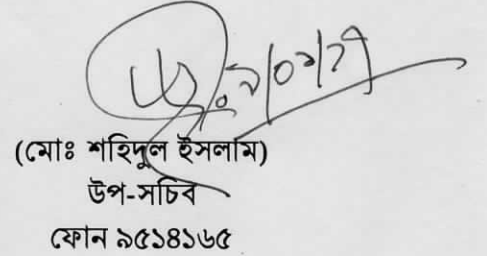 (মোঃ শহিদুল ইসলাম)
উপ-সচিব
ফোন ৯৫১৪১৬৫